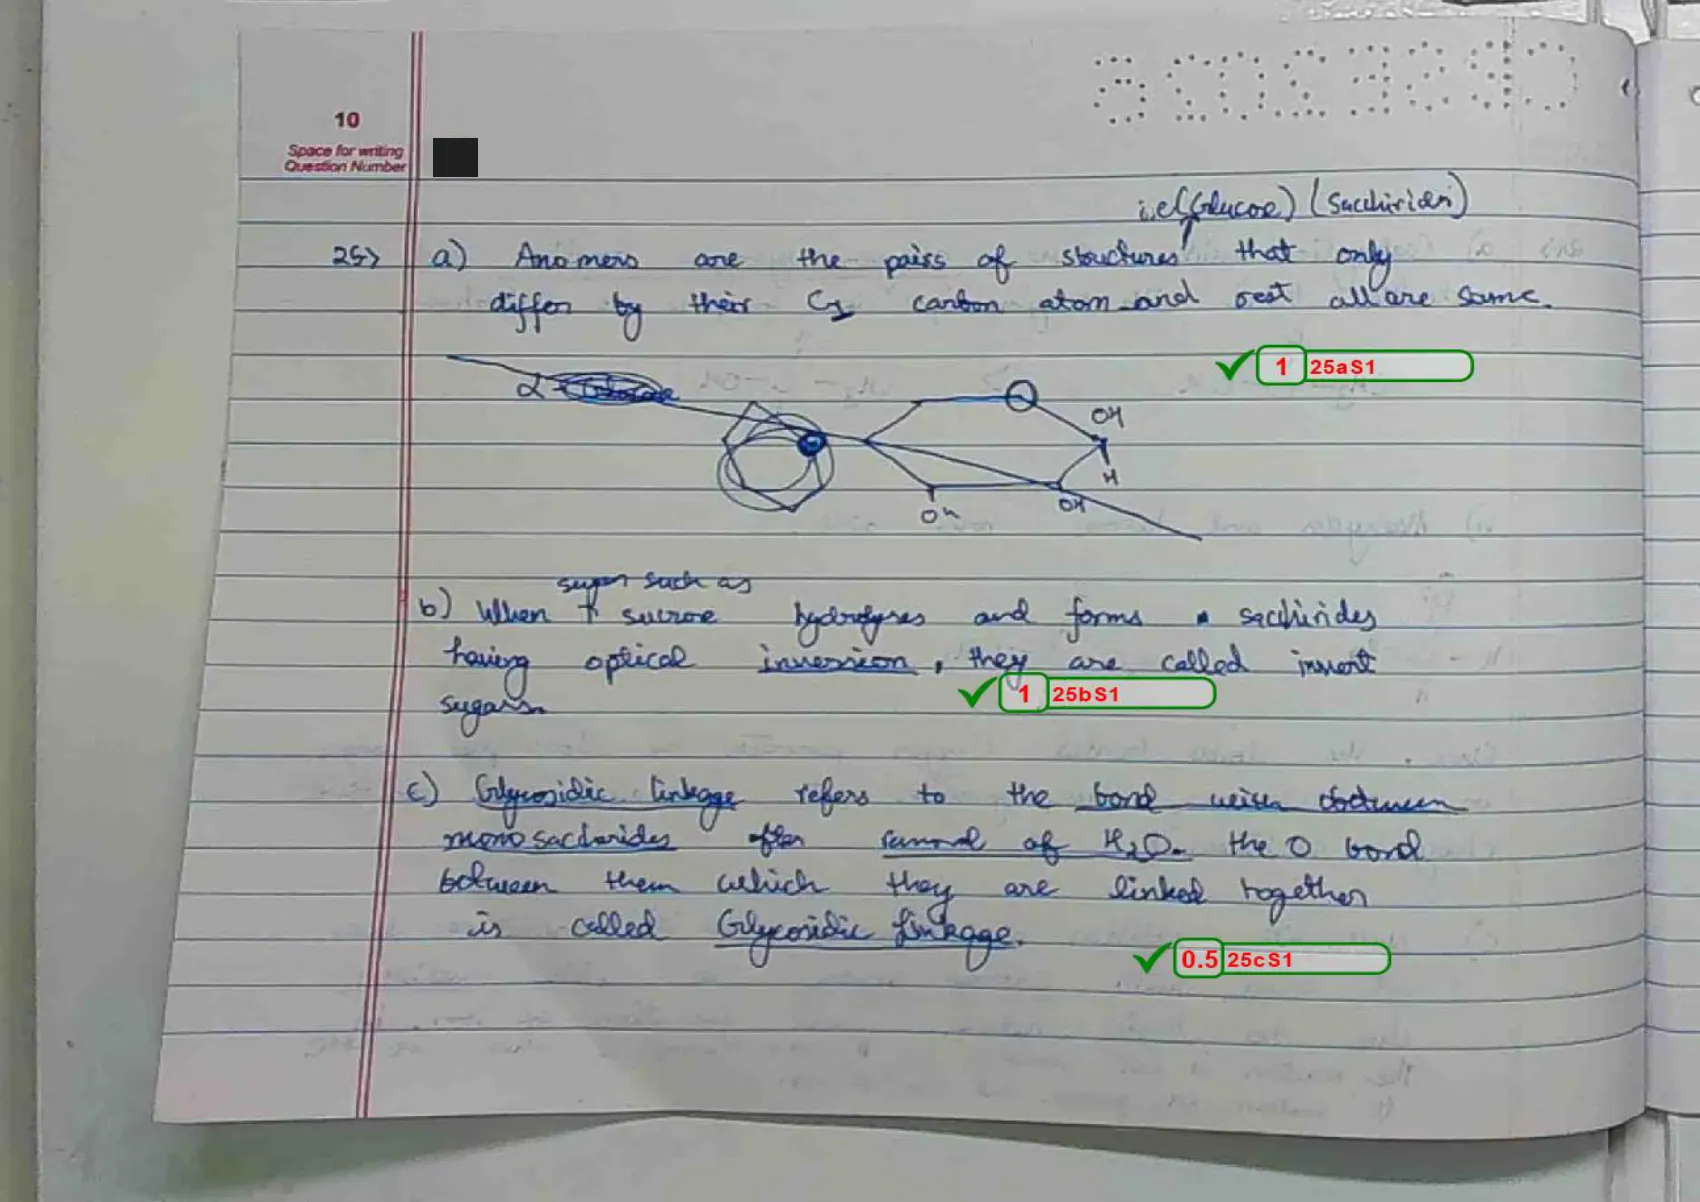 CBSE2025
10
Space for writing
Question Number
i.e (Glucose) (Sacchirides)
25> a) Anomers are the pairs of structures that only
differ by their C1 carbon atom and rest all are same.
1 25aS1
α-
OH
H
OH
OH
sugar such as
b) When ↑ sucrose hydrolyses and forms sacchirides
having optical inversion, they are called invert
1 25bS1
sugars.
c) Glycosidic linkage refers to the bond between
monosaccharides after removal of H2O. the O bond
between them which they are linked together
is called Glycosidic linkage.
0.5 25cS1